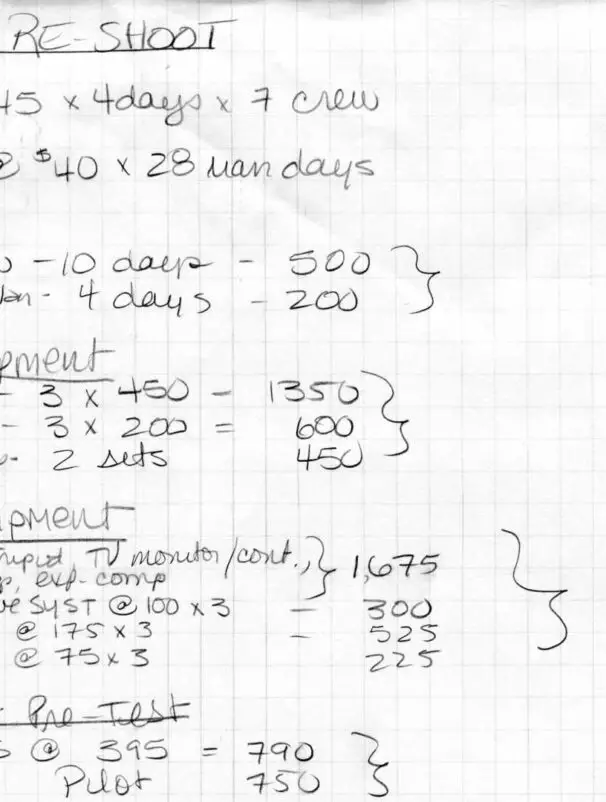 RE-SHOOT
45 x 4days x 7 crew
@ $40 x 28 man days
- 10 days - 500
- 4 days - 200
pment
- 3 x 450 = 1350
- 3 x 200 = 600
- 2 sets 450
ipment
TV monitor/cont., 1,675
exp. comp
ve SYST @ 100 x 3 - 300
@ 175 x 3 - 525
@ 75 x 3 225
Pre-Test
@ 395 = 790
Pilot 750